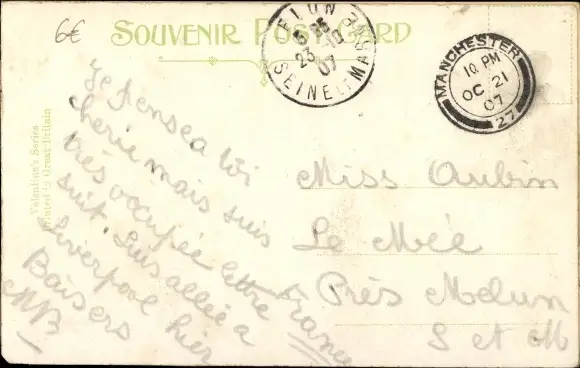 6€
SOUVENIR POST CARD
MELUN
5 35
23 -10
07
SEINE-ET-MARNE
MANCHESTER
10 PM
OC 21
07
27
Valentine's Series
Printed in Great Britain
Je pense a toi
cherie mais suis
très occupée lettre
suit. Suis allée a
Liverpool hier
Baisers
MB
Miss Aubin
Le Mée
Près Melun
S et M
France